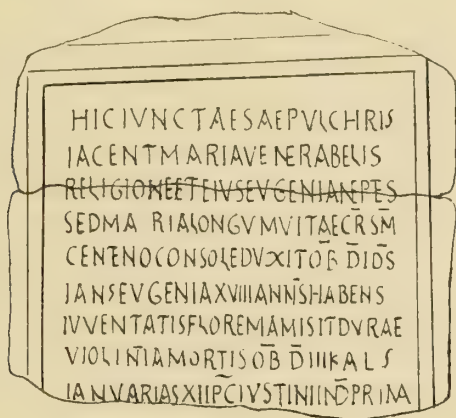 HIC IVNCTAE SAEPVLCHRIS
IACENT MARIA VENERABELIS
RELIGIONE ET EIVS EVGENIA NEPES
SED MARIA LONGVM VITAE CR̄SM̄
CENTENO CONSOLE DVXIT OB̄ D̄ ID̄S
IANS EVGENIA XVIII ANN̄S HABENS
IVVENTATIS FLOREM AMISIT DVRAE
VIOLINTIA MORTIS OB̄ D̄ III KALS
IANVARIAS XII P̄C̄ IVSTINI IND̄ PRIMA